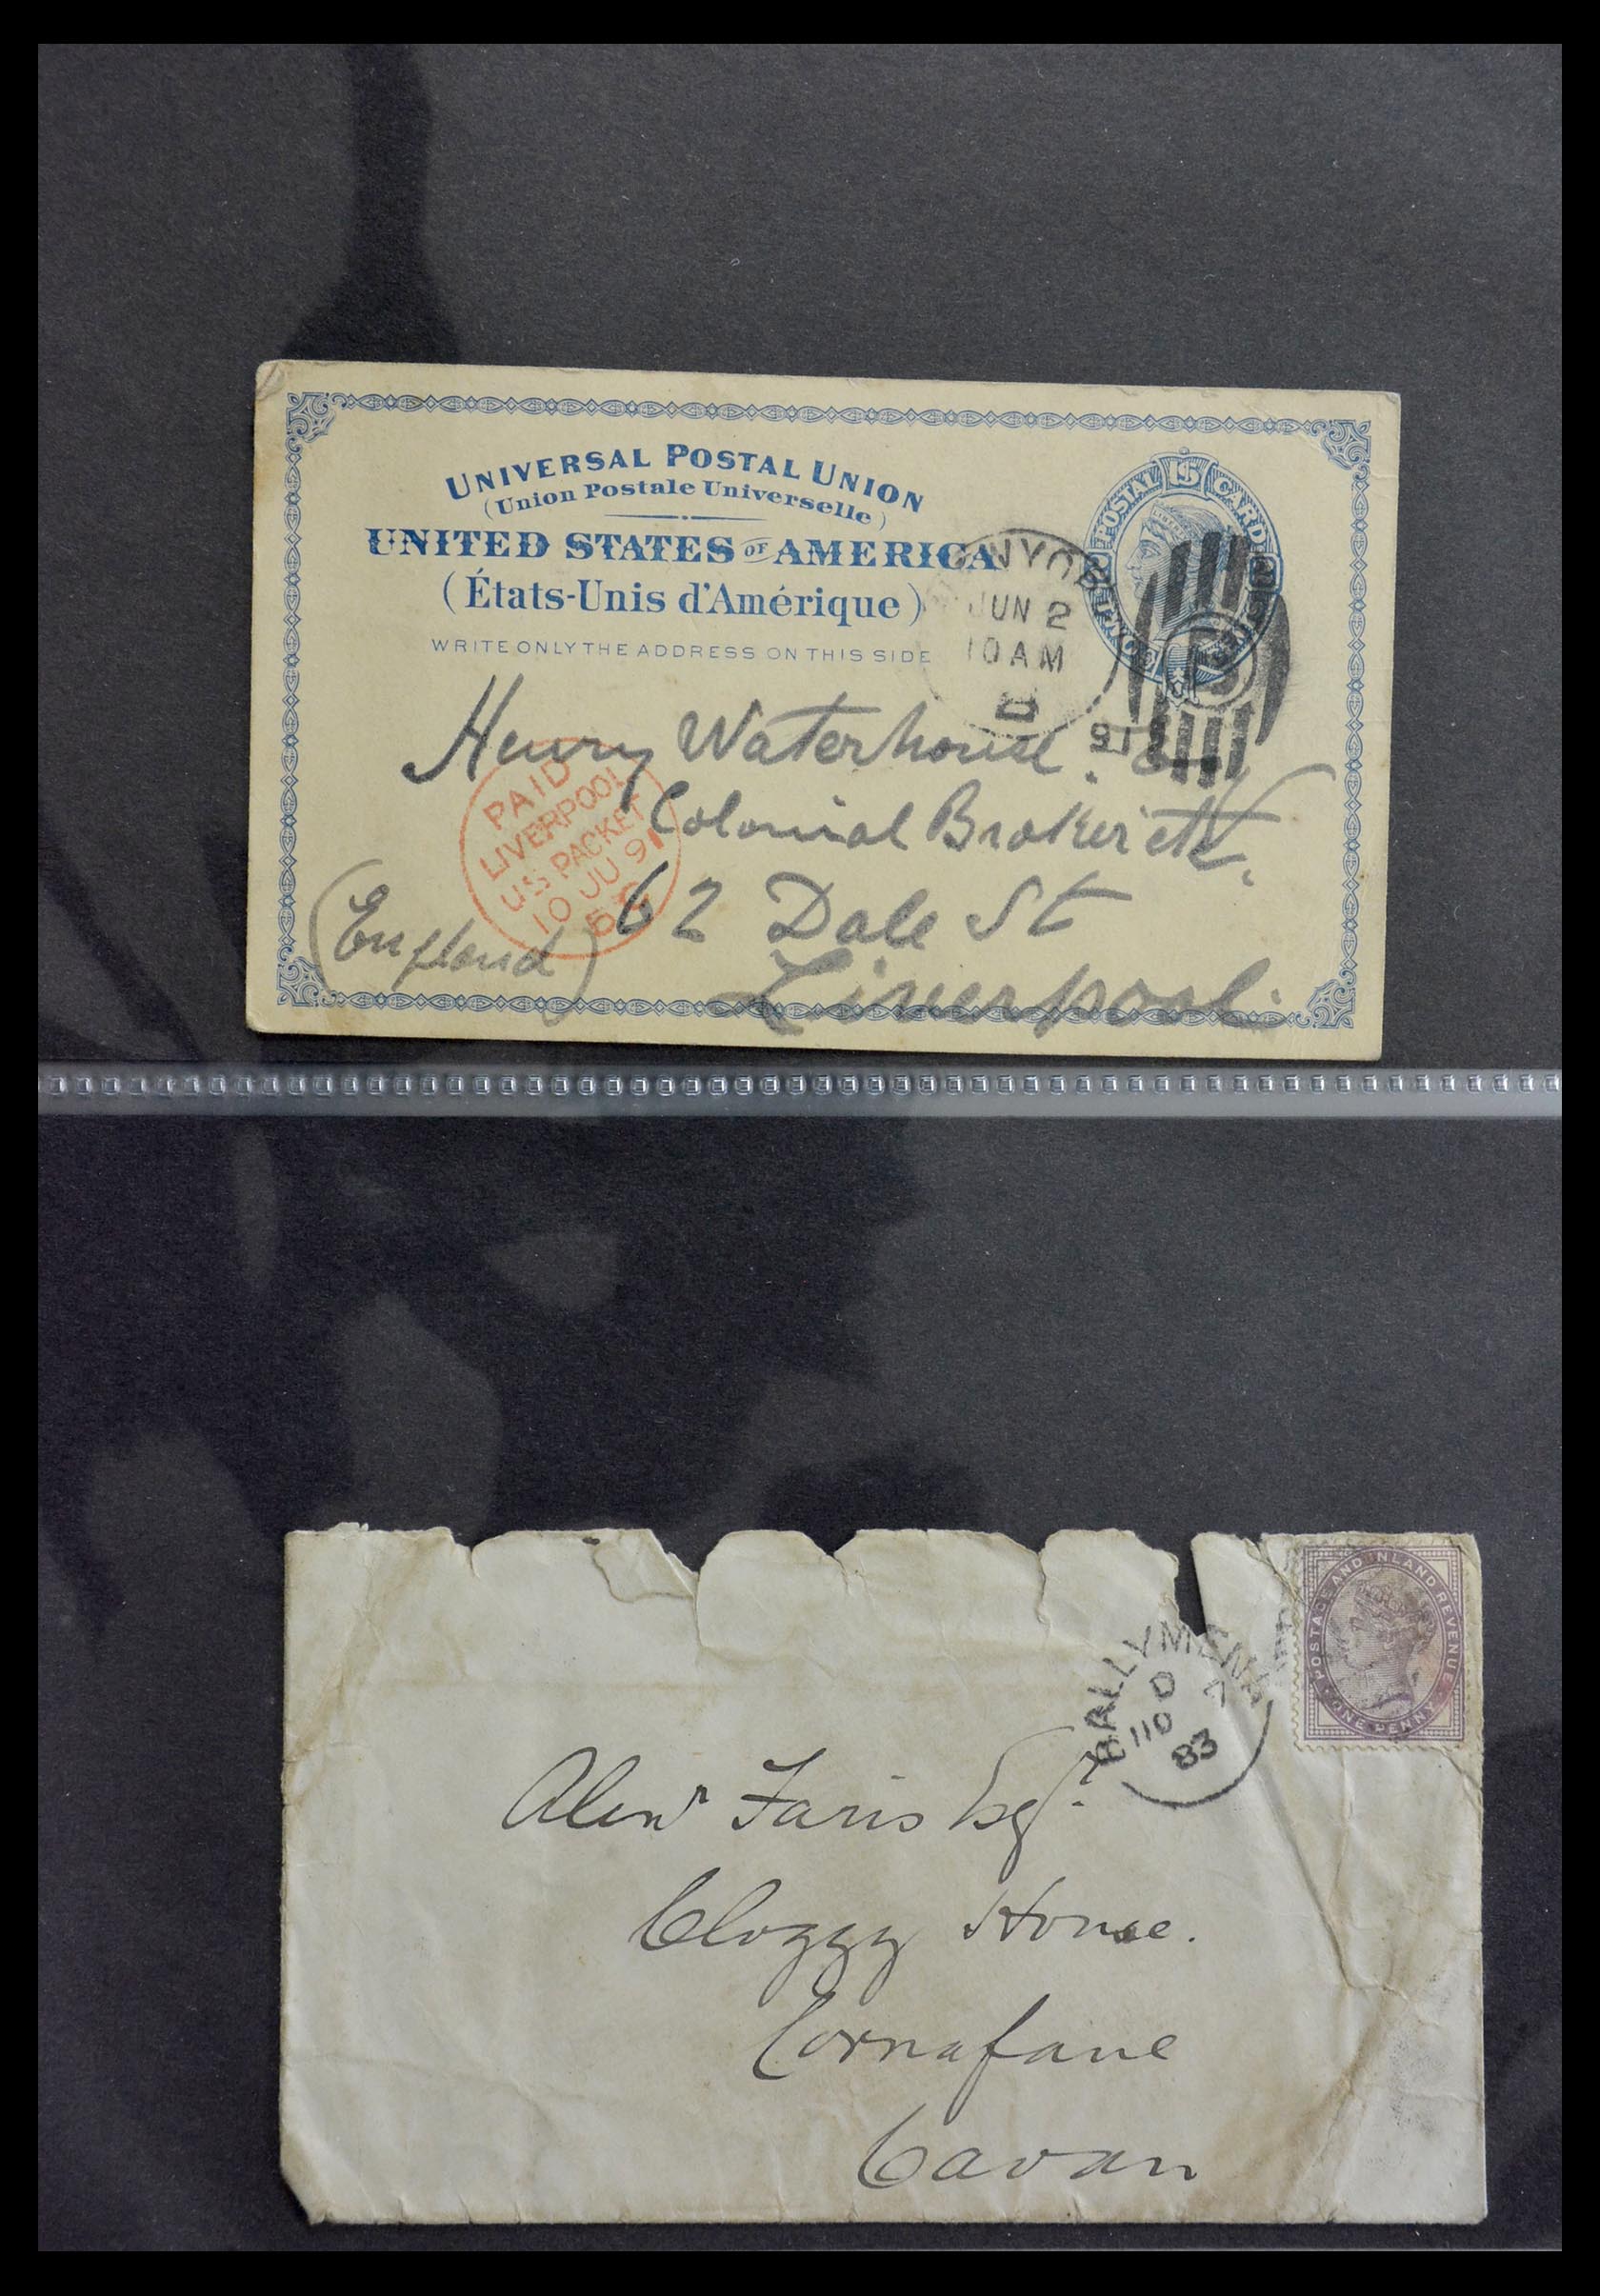 UNIVERSAL POSTAL UNION
(Union Postale Universelle)
UNITED STATES OF AMERICA
(États-Unis d'Amérique)
WRITE ONLY THE ADDRESS ON THIS SIDE
POSTAL 1S CARD
JUN 2
10 AM
D
91
Henry Waterhouse.
Colonial Broker etc.
62 Dale St
Liverpool.
(England)
PAID
LIVERPOOL
US PACKET
10 JU 91
POSTAGE AND INLAND REVENUE
ONE PENNY
BALLYMENA
D
110
83
Alexr Faris Esqr.
Cloggy House.
Cornafane
Cavan